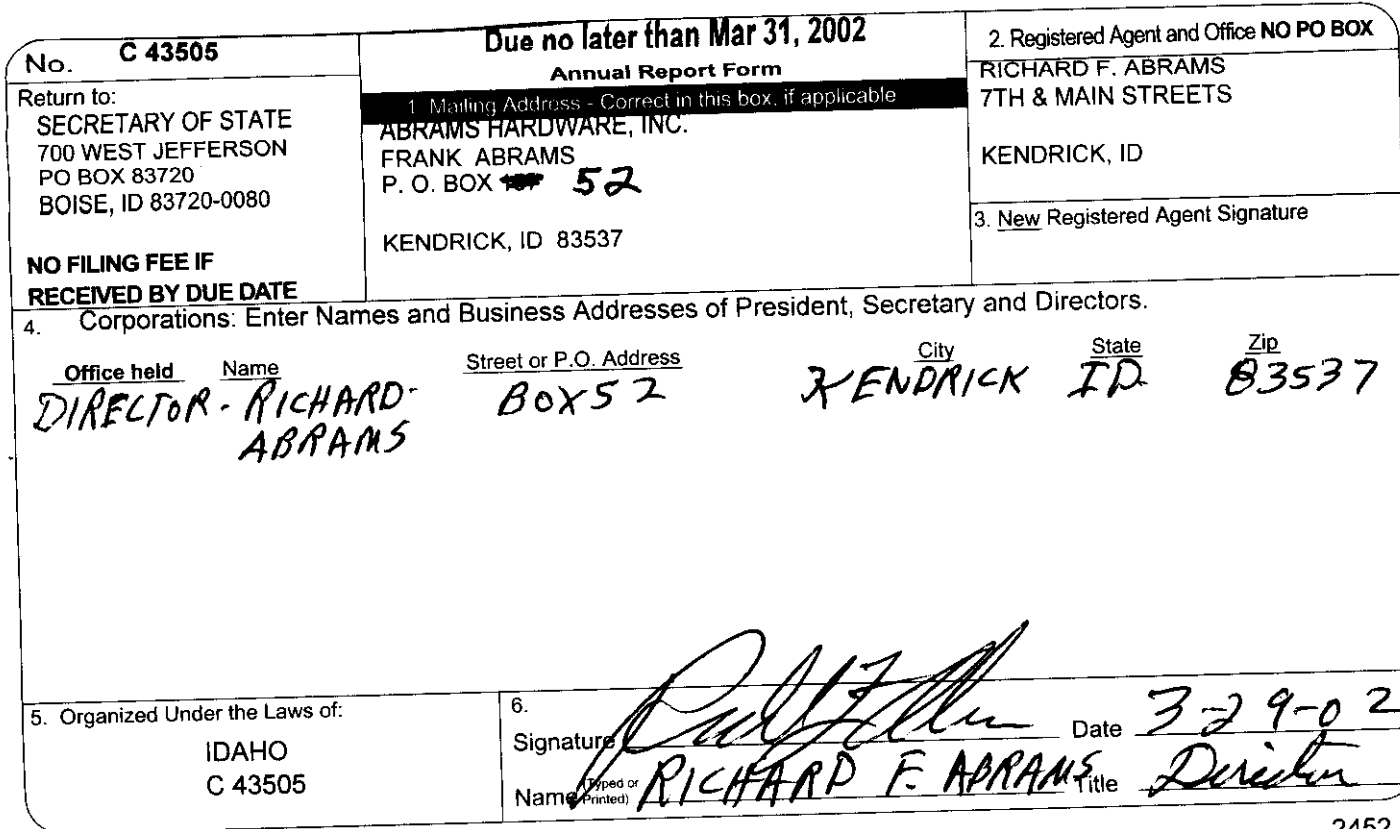 No. C 43505
Return to:
SECRETARY OF STATE
700 WEST JEFFERSON
PO BOX 83720
BOISE, ID 83720-0080
NO FILING FEE IF
RECEIVED BY DUE DATE
Due no later than Mar 31, 2002
Annual Report Form
1. Mailing Address - Correct in this box, if applicable
ABRAMS HARDWARE, INC.
FRANK ABRAMS
P. O. BOX 52
KENDRICK, ID 83537
2. Registered Agent and Office NO PO BOX
RICHARD F. ABRAMS
7TH & MAIN STREETS
KENDRICK, ID
3. New Registered Agent Signature
4. Corporations: Enter Names and Business Addresses of President, Secretary and Directors.
Office held Name Street or P.O. Address City State Zip
DIRECTOR - RICHARD - BOX 52 KENDRICK ID 83537
ABRAMS
5. Organized Under the Laws of:
IDAHO
C 43505
6.
Signature Date 3-29-02
Name (Typed or Printed) RICHARD F. ABRAMS Title Director
2452